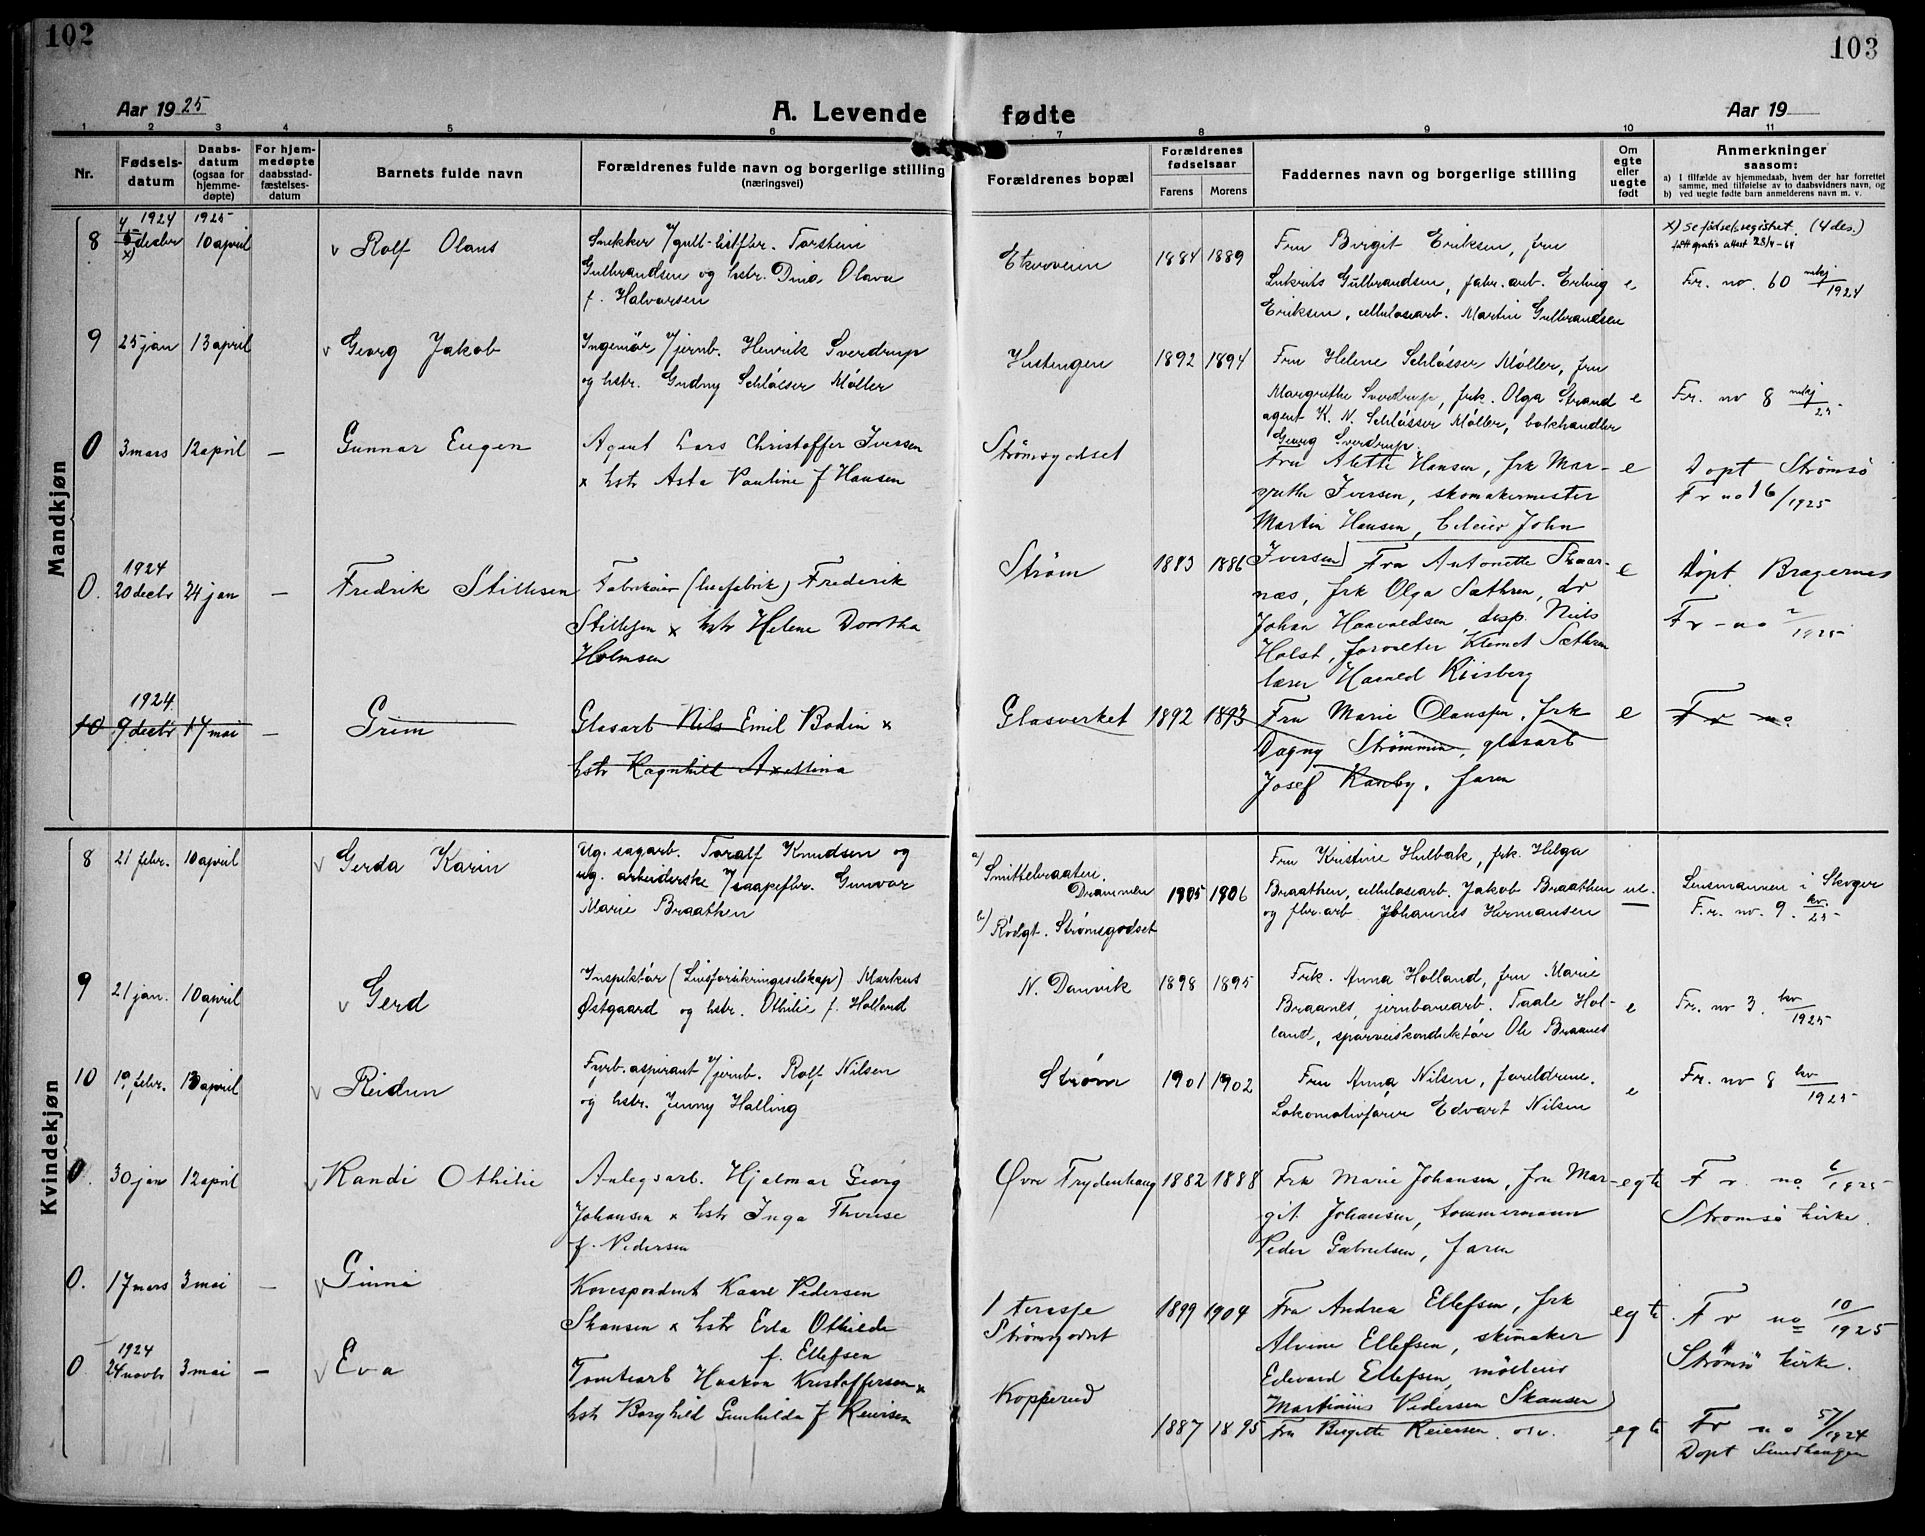 102
103
Aar 1925
A. Levende fødte
Aar 19
1 2 3 4 5 6 7 8 9 10 11
Nr.
Fødselsdatum
Daabsdatum (ogsaa for hjemmedøpte)
For hjemmedøpte daabsstadfæstelsesdatum
Barnets fulde navn
Forældrenes fulde navn og borgerlige stilling (næringsvei)
Forældrenes bopæl
Forældrenes fødselsaar
Farens Morens
Faddernes navn og borgerlige stilling
Om egte eller uegte født
Anmerkninger saasom:
a) I tilfælde av hjemmedaab, hvem der har forrettet samme, med tilføielse av to daabsvidners navn, og
b) ved uegte fødte barn anmelderens navn m. v.
Mandkjøn
1924 1925
8 5 decbr 10 april Rolf Olaus
4
x)
Snekker
Gulbrandsen og hstr. Olava
f. Halvorsen
1884 1889
Fru Birgit Eriksen, fru
Gulbrandsen, fabr. arb. Erling
Eriksen, cellulosearb. Martin Gulbrandsen
e
x) se fødselsregistret. (4 des.)
Fr. no. 60 1924
9 25 jan 13 april Georg Jakob
Ingeniør v/jernb. Henrik Sverdrup
og hstr. Gudny Schlösser Møller
1892 1894
Fru Helene Schlösser Møller, fru
Margrethe Sverdrup, frk. Olga Strand
agent K. N. Schlösser Møller, bokhandler
Georg Sverdrup.
e
Fr. no 8 25
0 3 mars 12 april — Gunnar Eugen
Agent Lars Christoffer Iversen
x hstr Asta Pauline f Hansen
Strømsgodset
Fru Alette Hansen, frk Mar-
grethe Iversen, skomakermester
Martin Hansen, John
Iversen
e
Døpt Strømsø
Fr no 16/1925
1924
0. 20 decbr 24 jan — Fredrik Stillesen
Frederik
Stillesen x hstr Helene Dorthea
Holmsen
Strøm
1883 1886
Fru Antonette Skaar-
næs, frk Olga Sæthren, dr
Johan Haavaldsen, disp. Niels
Holst, forvalter Klemet Sæthren
Riisberg
e
Døpt Bragernes
Fr - no 2/1925
1924
10 9 decbr 17 mai — Grim
Glasarb Nils Emil Bodin x
hstr Ragnhild Axellina
Glasverket
1892 1893
Fru Marie Olaussen, frk
Dagny Strømmen, glasarb
Josef Ranby, faren
e
Fr no
Kvindekjøn
8 21 febr. 10 april Gerda Karin
Ug. sagarb. Toralf Knudsen og
ug. arbeiderske v/saapefbr. Gunvor
Marie Braathen
a) Smittebraaten,
Drammen
b) Rødgt. Strømsgodset
1905 1906
Fru Kristine Hulbak, frk. Helga
Braathen, cellulosearb. Jakob Braathen
og fbr. arb. Johannes Hermansen
ue.
Lensmannen i Skoger
F. r. no. 9. kv. 25
9 21 jan. 10 april Gerd
Inspektør (Livsforsikringsselskap) Markus
Østgaard og hstr. Othilie f. Holland
N. Danvik
1898 1895
Frk. Anna Holland, fru Marie
Braanes, jernbanearb. Hol-
land, sporveiskonduktør Ole Braanes
e
Fr. no 3. kv 1925
10 19 febr. 13 april Reidun
Fyrb. aspirant v/jernb. Rolf Nilsen
og hstr. Jenny Halling
Strøm
1901 1902
Fru Anna Nilsen, foreldrene.
Lokomotivfører Edvart Nilsen
e
Fr. no 8 kv 1925
0. 30 jan 12 april Randi Othilie
Anlegsarb. Hjalmar Georg
Johansen x hstr Inga Therese
f. Pedersen
Øvre Frydenhaug
1882 1888
Frk Marie Johansen, fru Mar-
git Johansen, tømmermann
Peder Gabrielsen, faren
egte
Fr. no 6/1925
Strømsø kirke.
0. 17 mars 3 mai —
Korespondent Kaare Pedersen
Skansen x hstr Erla Othilde
f. Ellefsen
1 terasse
Strømsgodset
1899 1904
Fru Andrea Ellefsen, frk
Alvine Ellefsen, skomaker
Edevard Ellefsen,
Martinius Pedersen Skansen
egte
Fr no 10/1925
Strømsø kirke.
1924
0 24 novbr 3 mai — Eva
Tomtearb Haakon Kristoffersen x
hstr Borghild Gunhilda f Reiersen
Kopperud
1887 1895
Fru Birgitte Reiersen osv.
egte
Fr no 57/1924
Døpt Sundhaugen